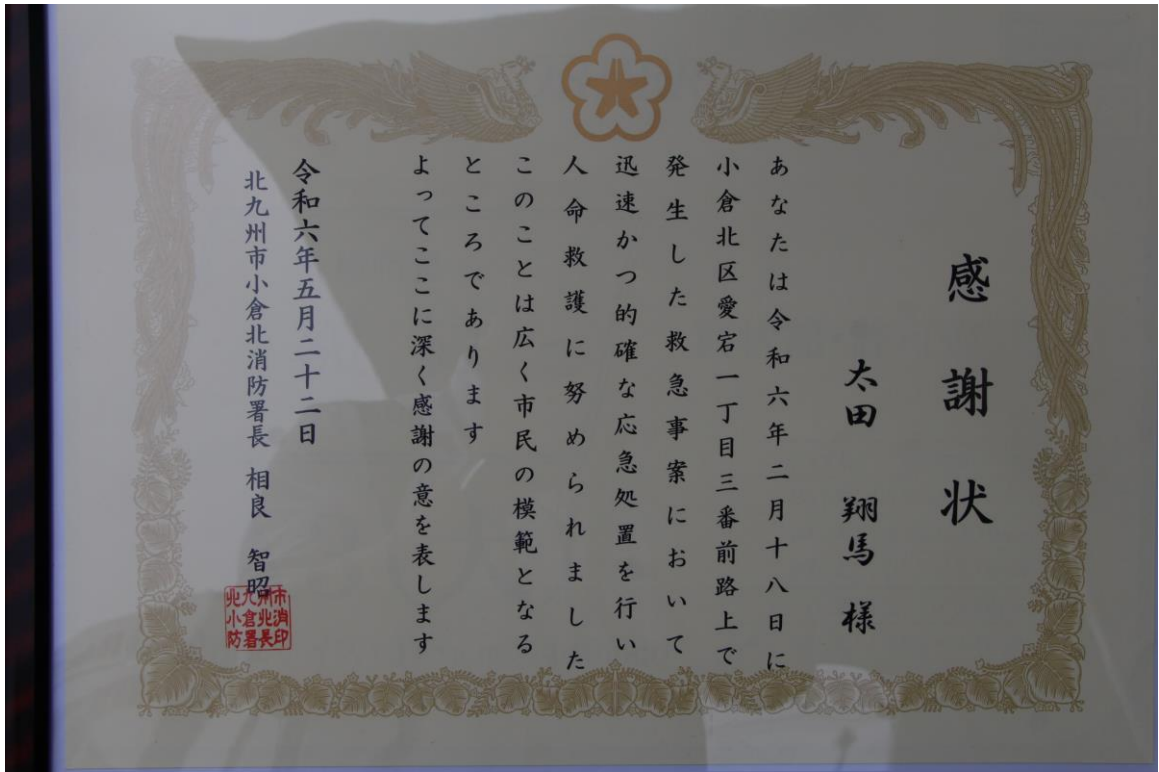 感謝状
太田 翔馬 様
あなたは令和六年二月十八日に
小倉北区愛宕一丁目三番前路上で
発生した救急事案において
迅速かつ的確な応急処置を行い
人命救護に努められました
このことは広く市民の模範となる
ところであります
よってここに深く感謝の意を表します
令和六年五月二十二日
北九州市小倉北消防署長 相良 智昭
市消印
州北長
九倉署
北小防